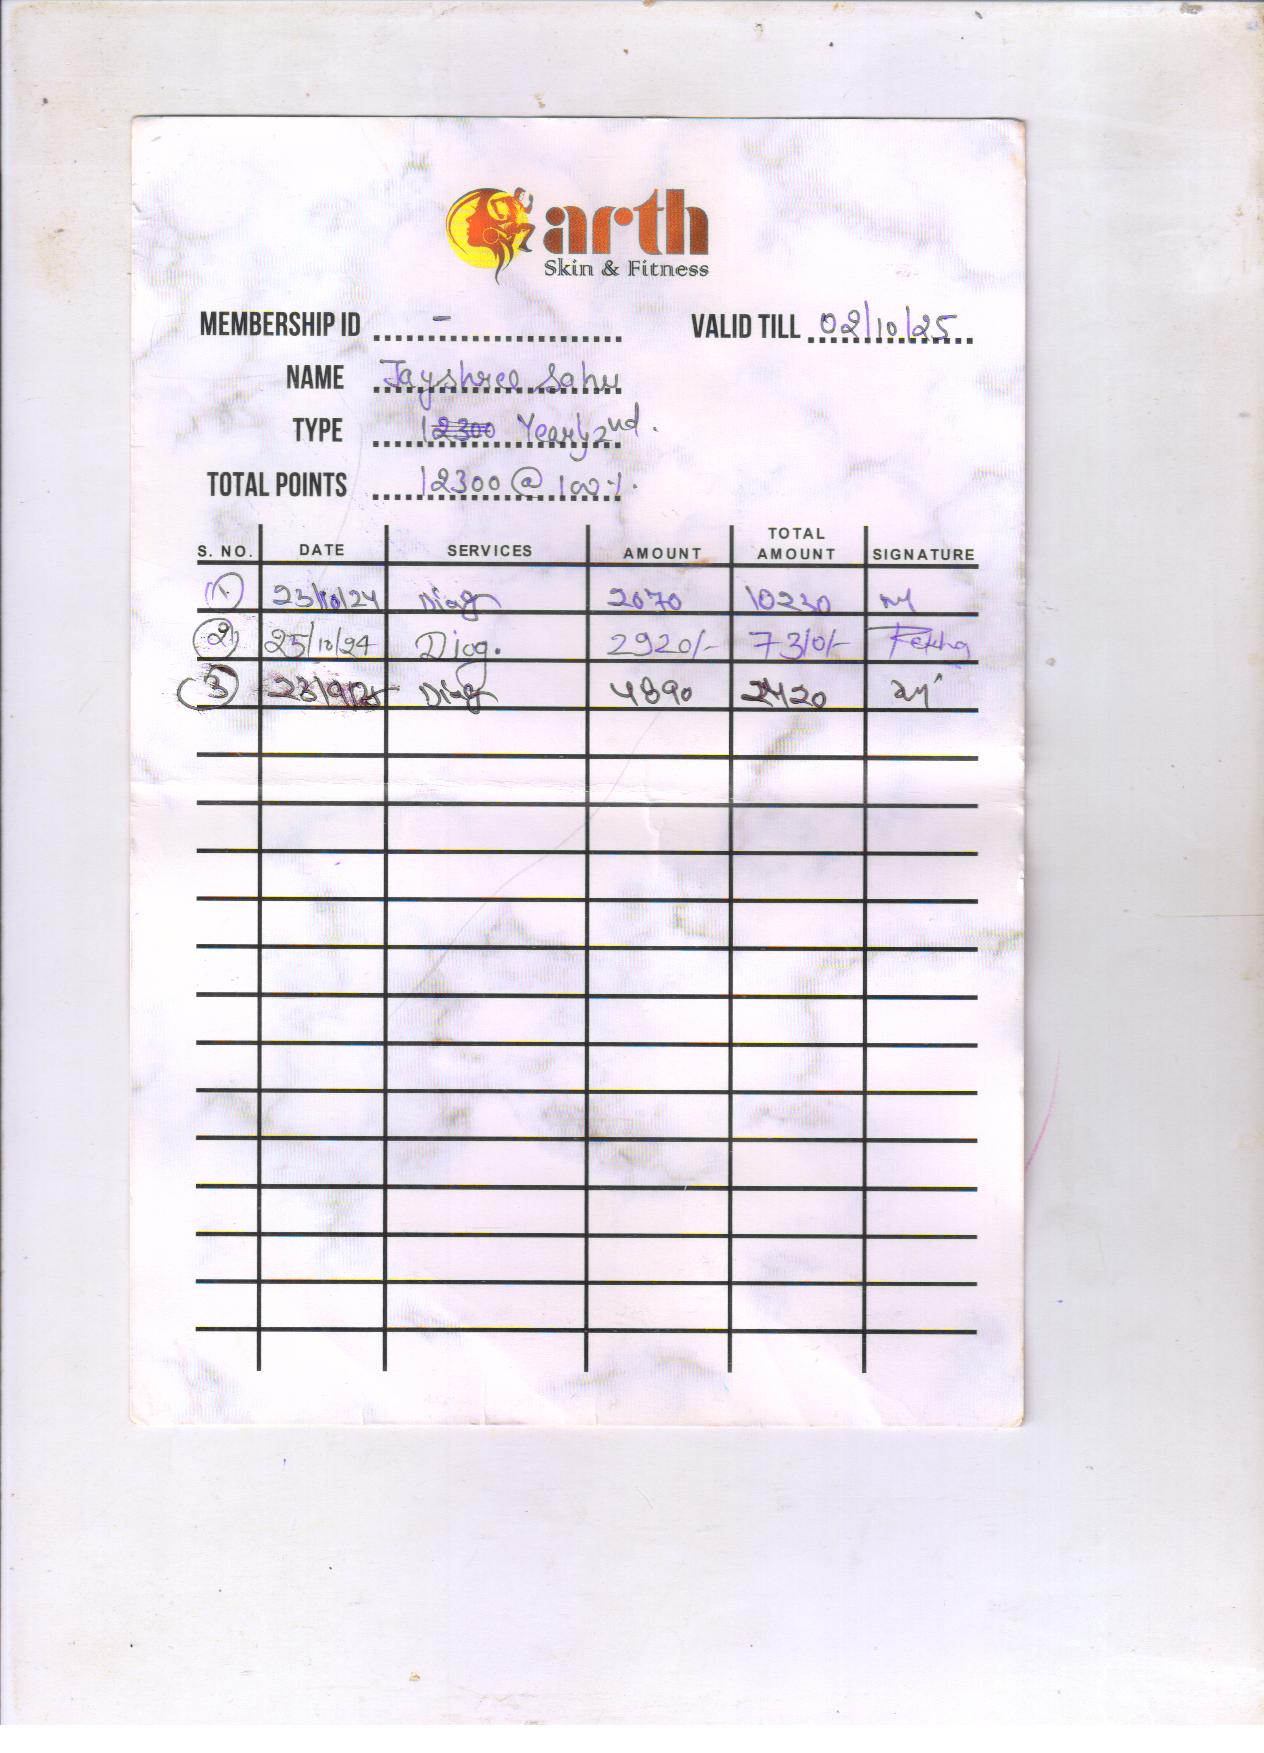 arth
Skin & Fitness
MEMBERSHIP ID - VALID TILL 02/10/25
NAME Jayshree Sahu
TYPE 12300 Yearly 2nd.
TOTAL POINTS 12300 @ 100%.
S. NO. DATE SERVICES AMOUNT TOTAL AMOUNT SIGNATURE
1. 23/10/24 Diag 2070 10230
2) 25/10/24 Diag. 2920/- 7310/-
3 23/9/25 Diag 4890 2420